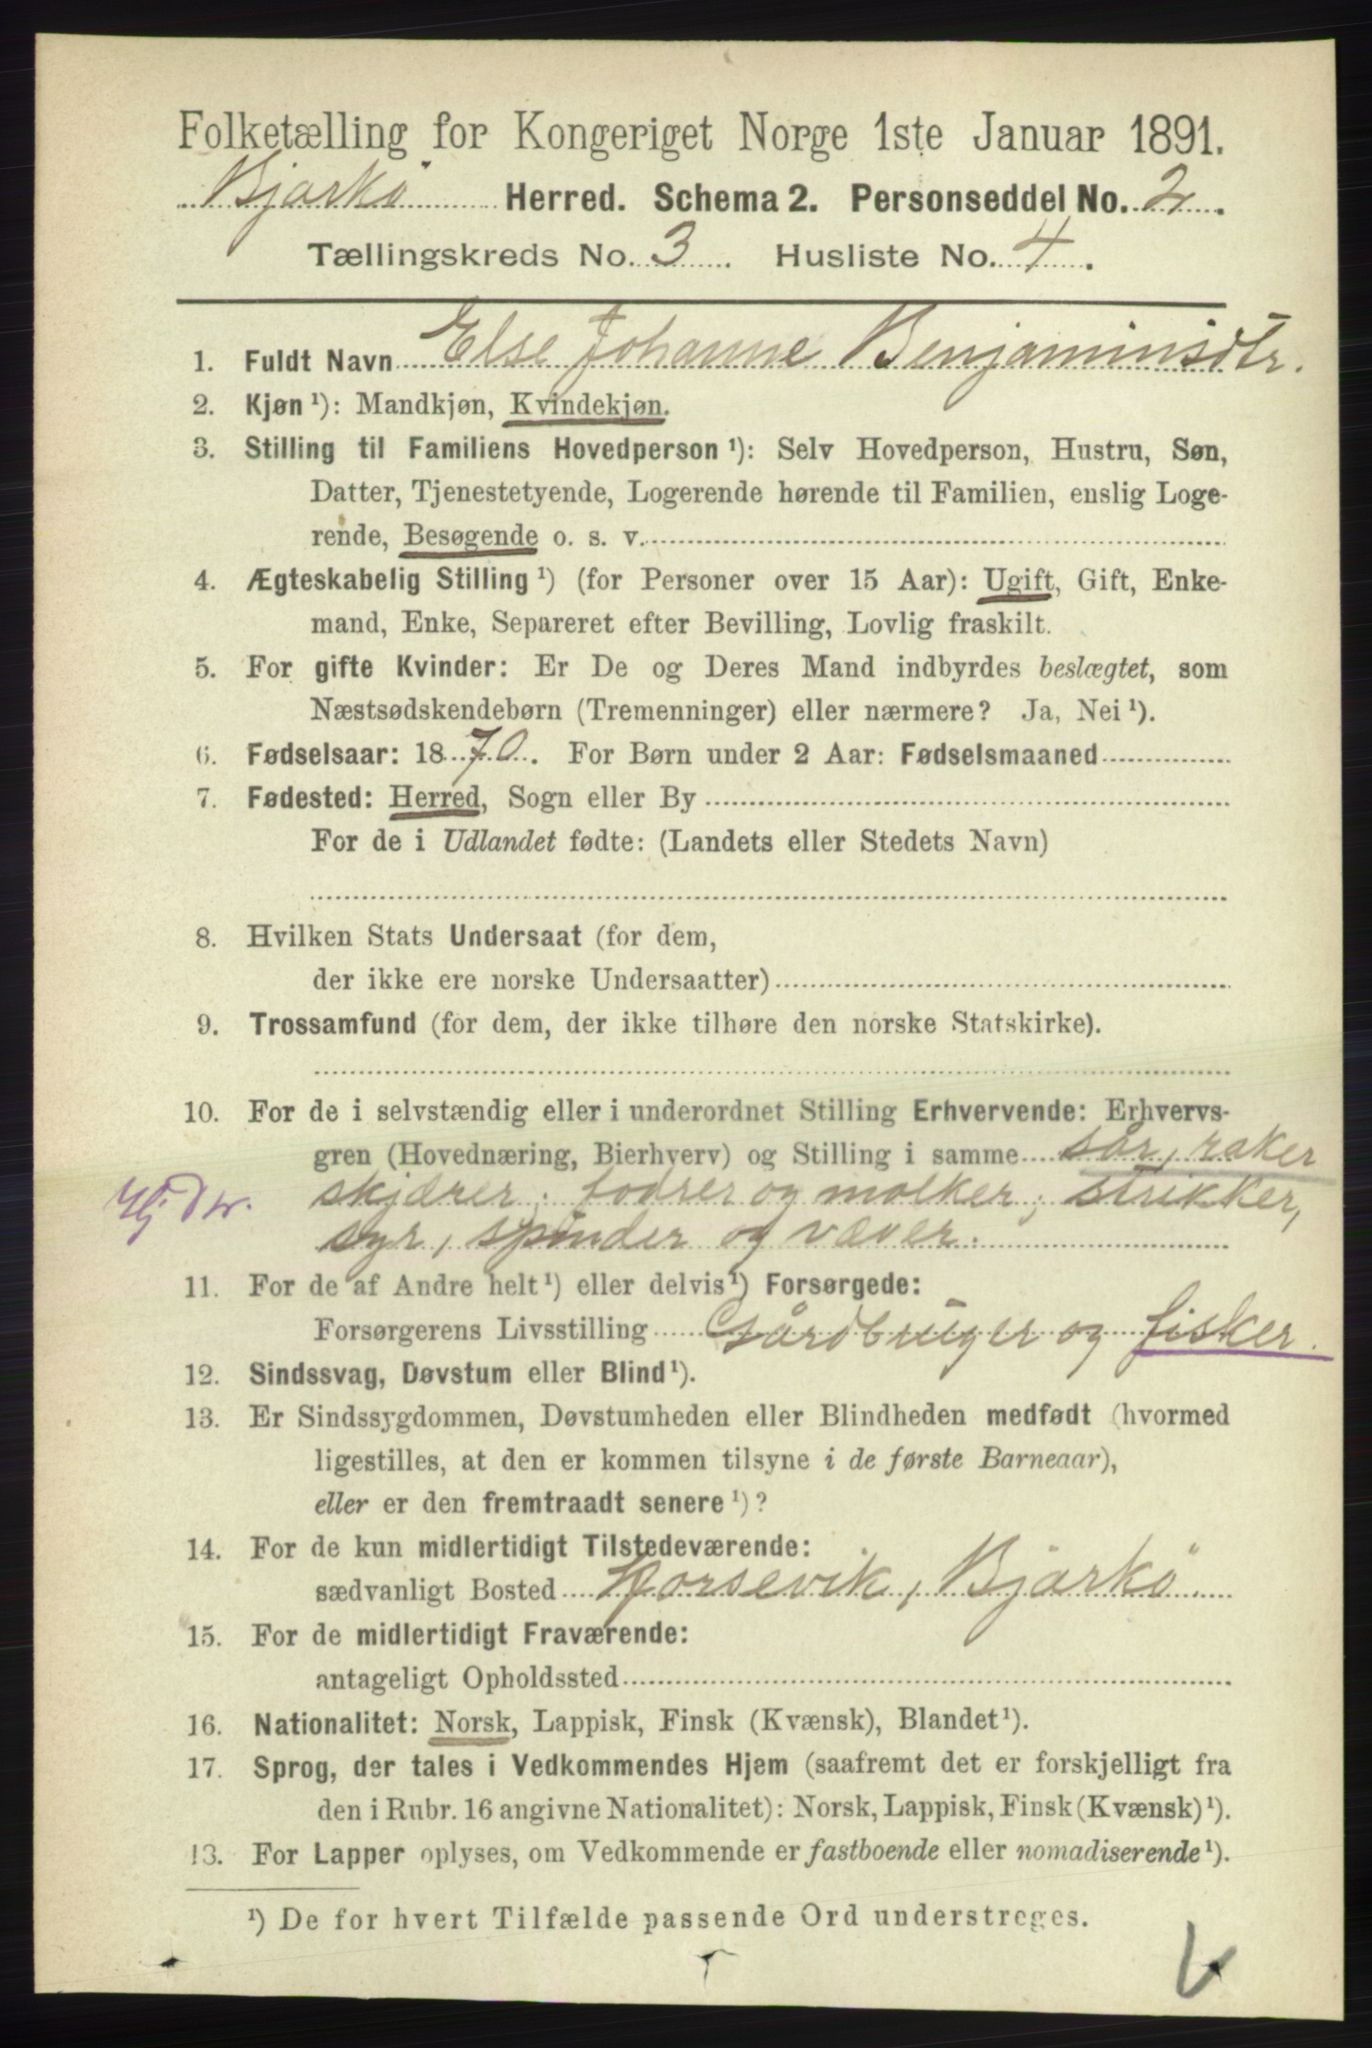 Folketælling for Kongeriget Norge 1ste Januar 1891.
Bjarkö Herred. Schema 2. Personseddel No. 2.
Tællingskreds No. 3. Husliste No. 4.
1. Fuldt Navn Else Johanne Benjaminsdtr.
2. Kjøn ¹): Mandkjøn, Kvindekjøn.
3. Stilling til Familiens Hovedperson ¹): Selv Hovedperson, Hustru, Søn,
Datter, Tjenestetyende, Logerende hørende til Familien, enslig Loge-
rende, Besøgende o. s. v.
4. Ægteskabelig Stilling ¹) (for Personer over 15 Aar): Ugift, Gift, Enke-
mand, Enke, Separeret efter Bevilling, Lovlig fraskilt.
5. For gifte Kvinder: Er De og Deres Mand indbyrdes beslægtet, som
Næstsødskendebørn (Tremenninger) eller nærmere? Ja, Nei ¹).
6. Fødselsaar: 1870. For Børn under 2 Aar: Fødselsmaaned
7. Fødested: Herred, Sogn eller By
For de i Udlandet fødte: (Landets eller Stedets Navn)
8. Hvilken Stats Undersaat (for dem,
der ikke ere norske Undersaatter)
9. Trossamfund (for dem, der ikke tilhøre den norske Statskirke).
10. For de i selvstændig eller i underordnet Stilling Erhvervende: Erhvervs-
gren (Hovednæring, Bierhverv) og Stilling i samme sår, raker
skjærer; fodrer og molker; strikker,
syr, spinder og væver.
11. For de af Andre helt ¹) eller delvis ¹) Forsørgede:
Forsørgerens Livsstilling Gårdbruger og fisker.
12. Sindssvag, Døvstum eller Blind ¹).
13. Er Sindssygdommen, Døvstumheden eller Blindheden medfødt (hvormed
ligestilles, at den er kommen tilsyne i de første Barneaar),
eller er den fremtraadt senere ¹)?
14. For de kun midlertidigt Tilstedeværende:
sædvanligt Bosted Horsevik, Bjarkö
15. For de midlertidigt Fraværende:
antageligt Opholdssted
16. Nationalitet: Norsk, Lappisk, Finsk (Kvænsk), Blandet ¹).
17. Sprog, der tales i Vedkommendes Hjem (saafremt det er forskjelligt fra
den i Rubr. 16 angivne Nationalitet): Norsk, Lappisk, Finsk (Kvænsk) ¹).
13. For Lapper oplyses, om Vedkommende er fastboende eller nomadiserende ¹).
¹) De for hvert Tilfælde passende Ord understreges.